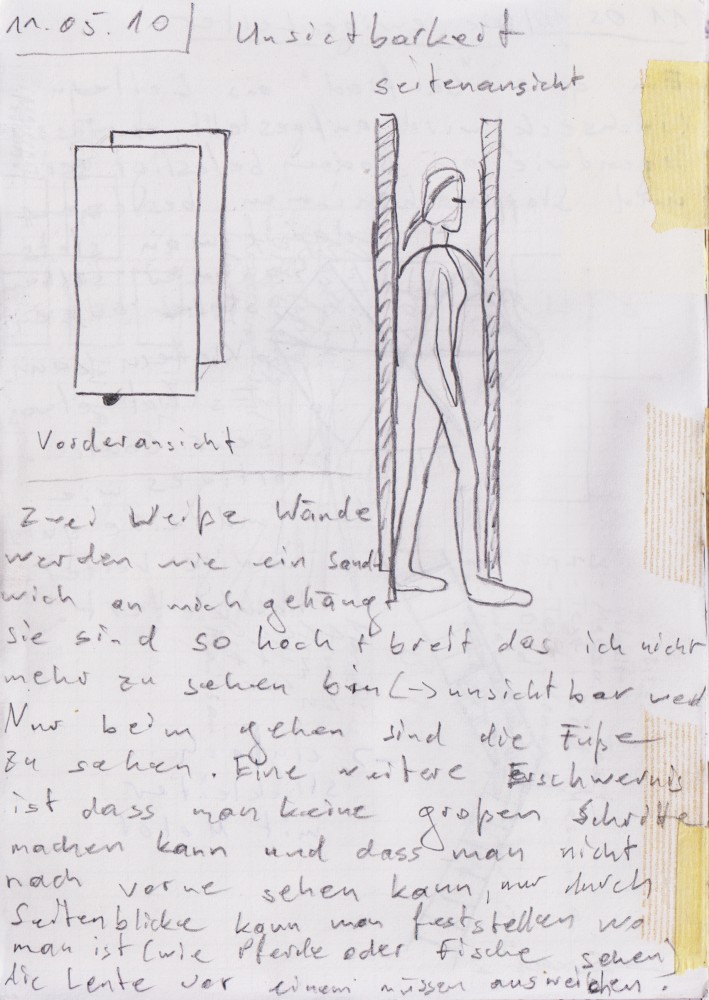 11.05.10 | Unsictbarkeit
Seitenansicht
Vorderansicht
Zwei Weiße Wände
werden wie ein Sandt
wich an mich gehängt
Sie sind so hoch + breit das ich nicht
mehr zu sehen bin (→ unsichtbar werd
Nur beim gehen sind die Füße
zu sehen. Eine weitere Erschwernis
ist dass man keine großen Schritte
machen kann und dass man nicht
nach vorne sehen kann, nur durch
Seitenblicke kann man feststellen wo
man ist (wie Pferde oder Fische sehen)
die Leute vor einem müssen ausweichen.